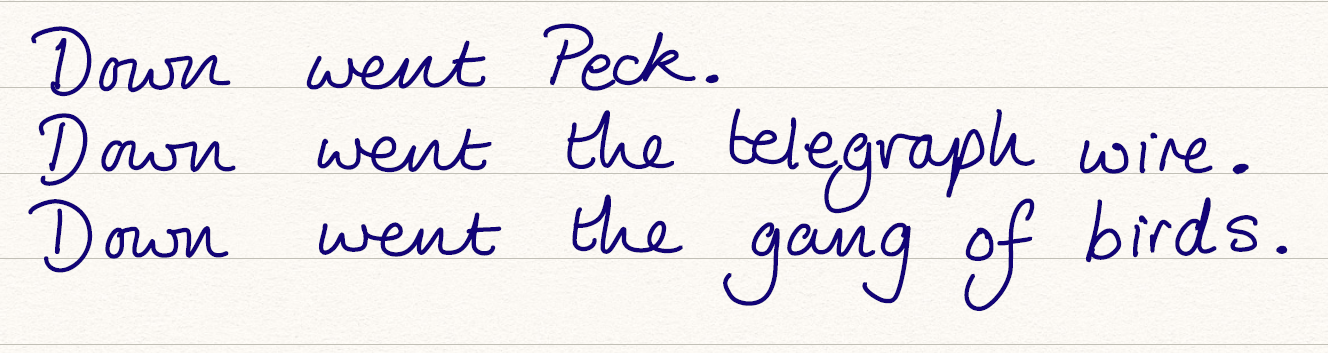 Down went Peck.
Down went the telegraph wire.
Down went the gang of birds.